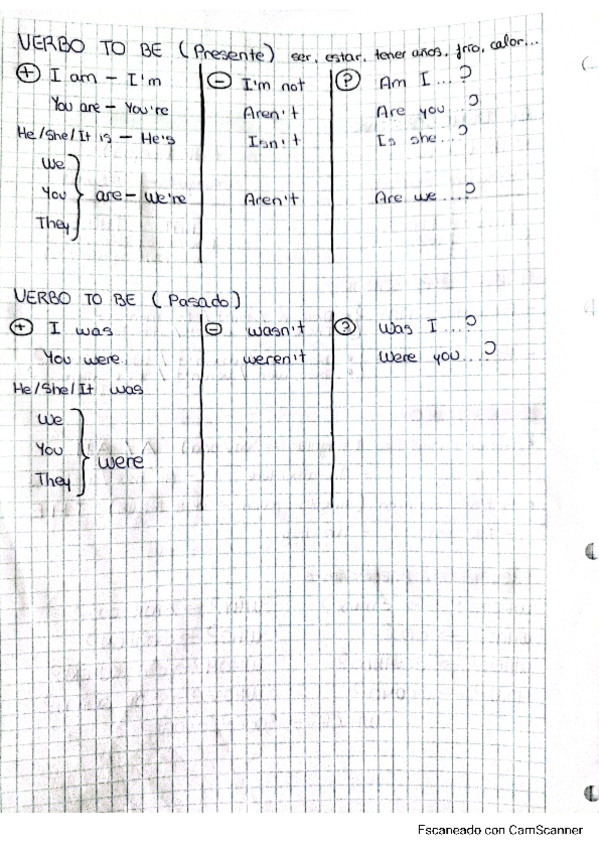 VERBO TO BE (Presente) ser, estar, tener años, frío, calor...
+ I am - I'm - I'm not ? Am I...?
You are - You're Aren't Are you...?
He/She/It is - He's Isn't Is she...?
We
You are - We're Aren't Are we...?
They
VERBO TO BE (Pasado)
+ I was - wasn't ? Was I...?
You were weren't Were you...?
He/She/It was
We
You were
They
Escaneado con CamScanner